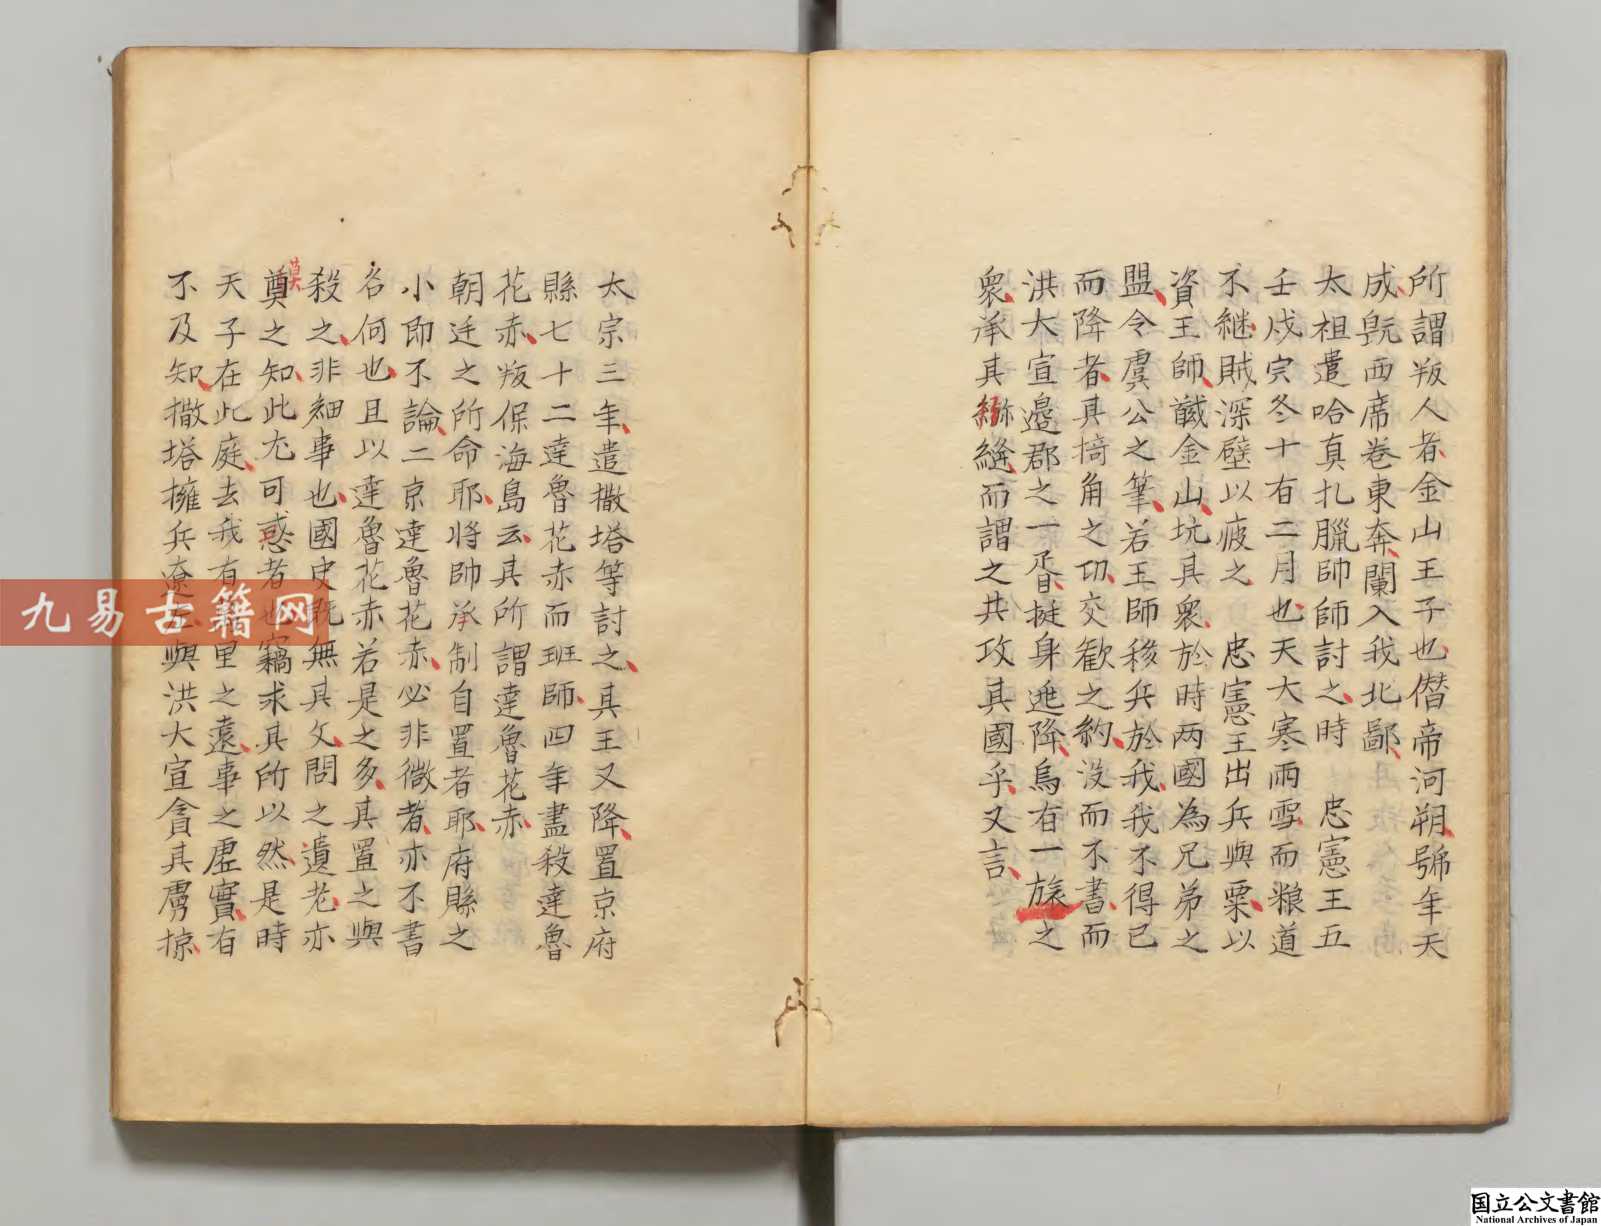 所謂叛人者金山王子也僭帝河朔號年天
成既西席卷東奔闌入我北鄙
太祖遣哈真扎臘帥師討之時 忠憲王五
壬戌實冬十有二月也天大寒雨雪而粮道
不継賊深壁以疲之 忠憲王出兵與粟以
資王師馘金山坑其衆於時两國為兄弟之
盟令虞公之筆若王師移兵於我我不得已
而降者具掎角之功交歓之約没而不書而
洪大宣邉郡之一胥挺身迯降烏有一旅之
衆承其縫而謂之共攻其國乎又言
太宗三年遣撒塔等討之其王又降置京府
縣七十二達魯花赤而班師四年盡殺達魯
花赤叛保海島云其所謂達魯花赤
朝廷之所命耶将帥承制自置者耶府縣之
小即不論二京達魯花赤必非微者亦不書
名何也且以達魯花赤若是之多其置之與
殺之非細事也國史既無其文問之遺老亦
莫
奠之知此尤可惑者也竊求其所以然是時
天子在此庭去我有里之遠事之虚實有
不及知撒塔擁兵遼左與洪大宣貪其虜掠
九易古籍网
国立公文書館
National Archives of Japan